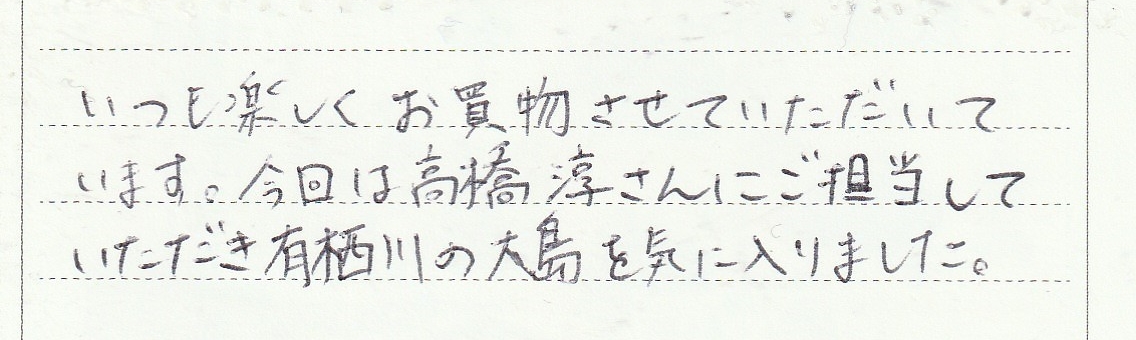 いつも楽しくお買物させていただいて
います。今回は高橋淳さんにご担当して
いただき有栖川の大島を気に入りました。